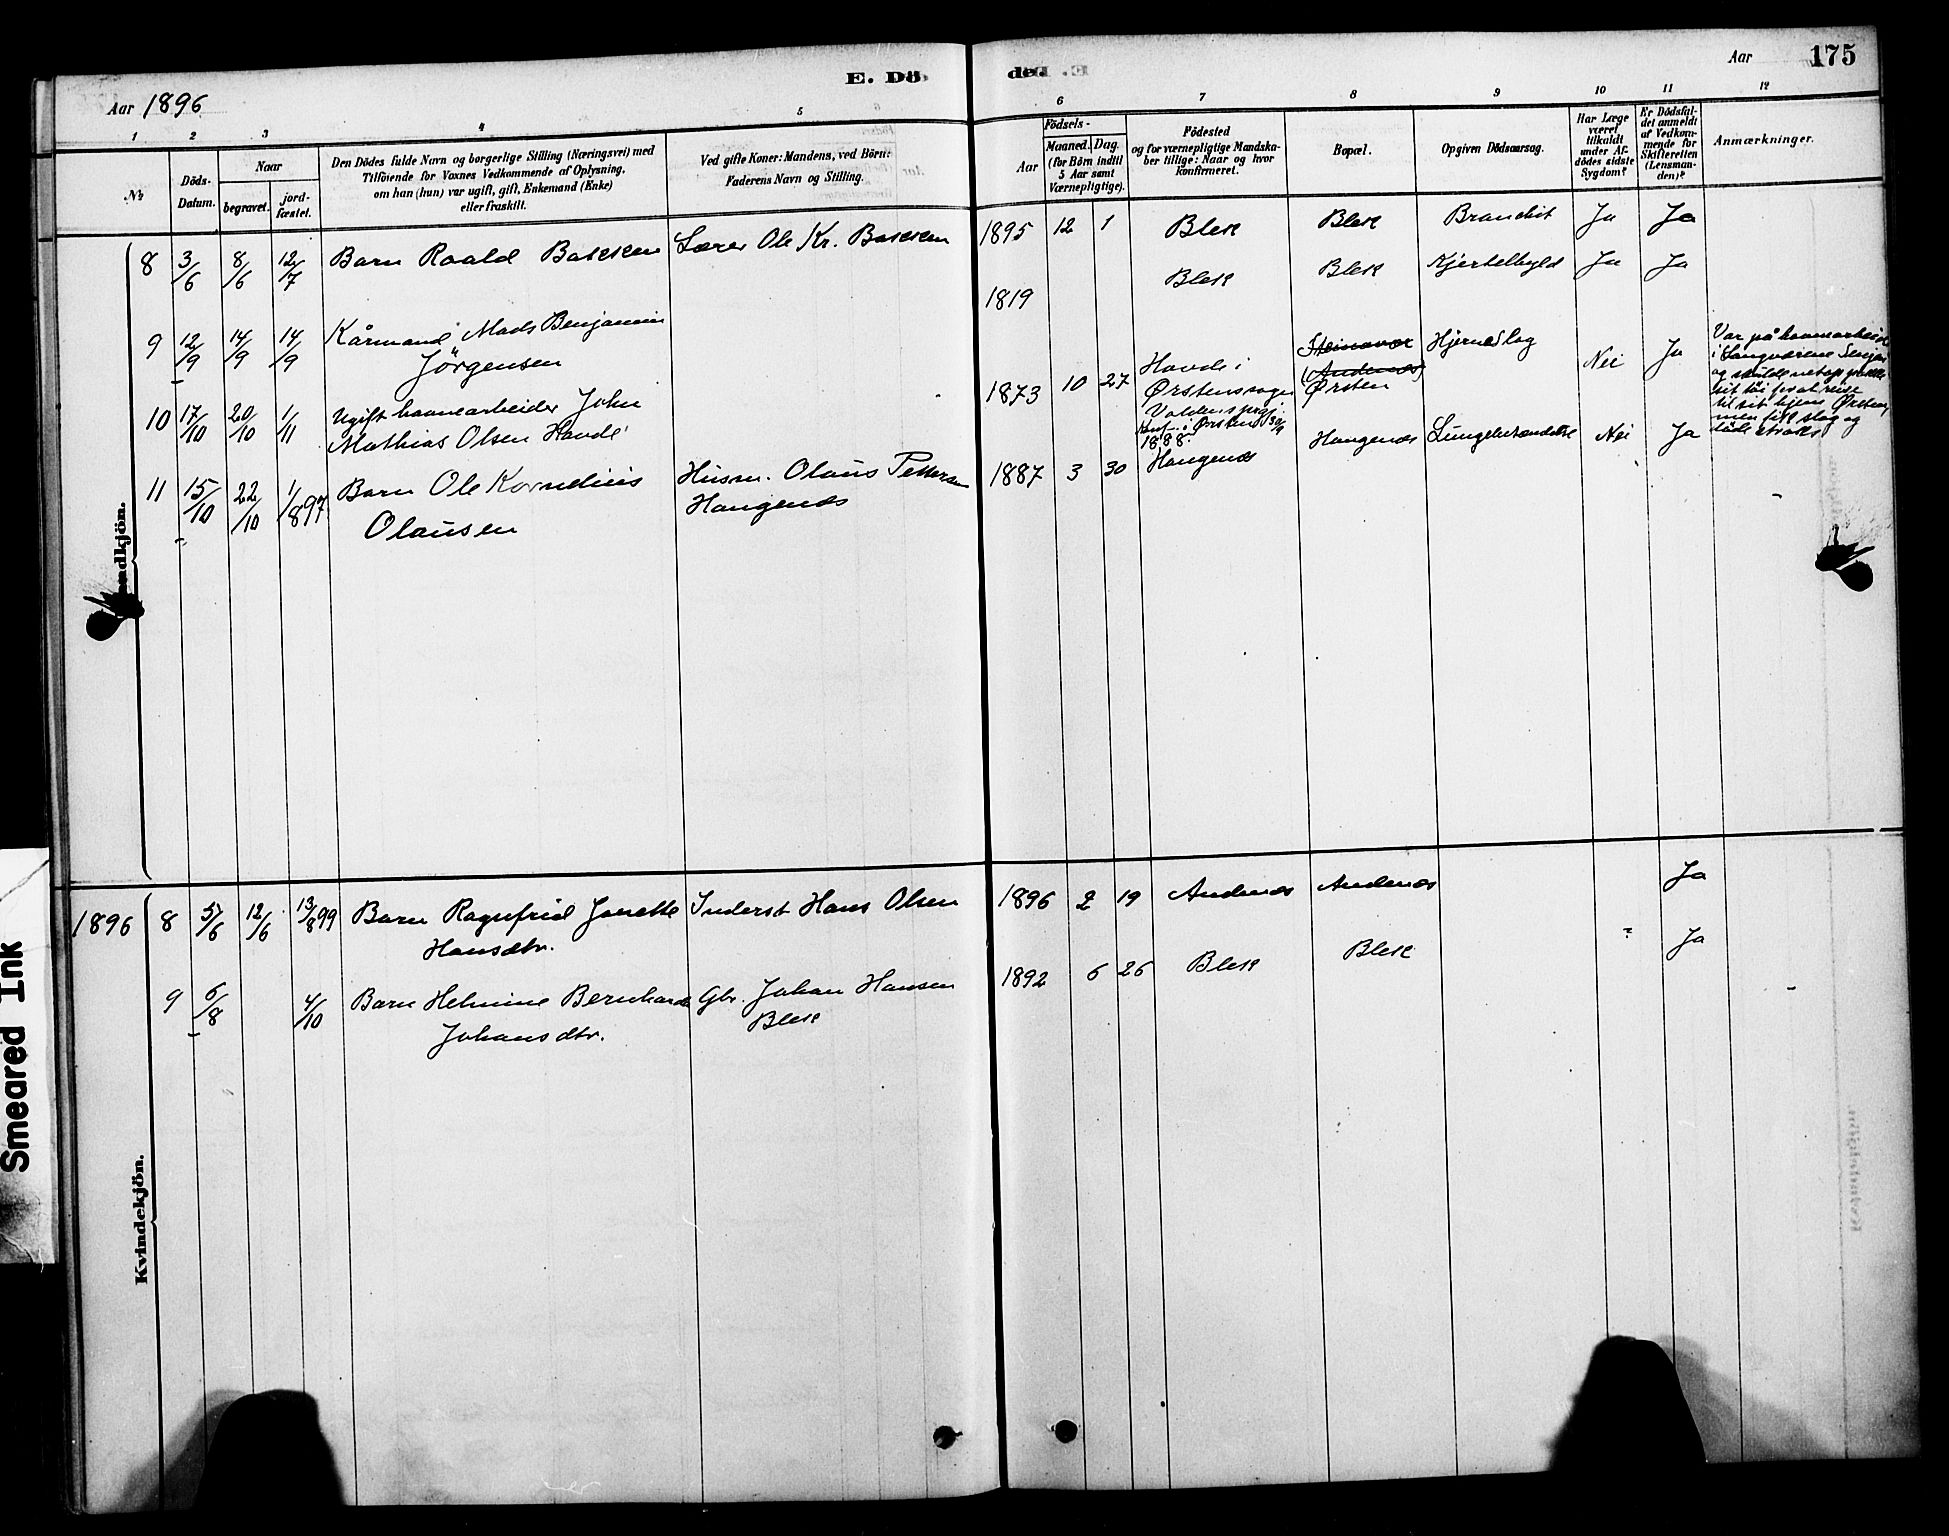 E. Dö-
de.
Aar 1896
Aar 175
1 2 3 4 5 6 7 8 9 10 11 12
№
Döds-
Datum.
Naar
begravet.
jord-
fæstet.
Den Dödes fulde Navn og borgerlige Stilling (Næringsvei) med
Tilföiende for Voxnes Vedkommende af Oplysning,
om han (hun) var ugift, gift, Enkemand (Enke)
eller fraskilt.
Ved gifte Koner: Mandens, ved Börn:
Faderens Navn og Stilling.
Födsels-
Aar
Maaned.
Dag.
(for Börn indtil
5 Aar samt
Værnepligtige).
Födested
og for værnepligtige Mandska-
ber tillige: Naar og hvor
konfirmeret.
Bopæl.
Opgiven Dödsaarsag.
Har Læge
været
tilkaldt
under Af-
dödes sidste
Sygdom?
Er Dödsfal-
det anmeldt
af Vedkom-
mende for
Skifteretten
(Lensman-
den)?
Anmærkninger.
8 3/6 8/6 12/7 Barn Roald Bakken Lærer Ole Kr. Bakken 1895 12 1 Blek Blek Ja Ja
9 12/9 14/9 14/9 Kårmand Mads Benjamin
Jörgensen
1819 Blek Blek Kjertelbyld Ja Ja
10 17/10 20/10 1/11 Ugift havnearbeider John
Mathias Olsen Havde
1873 10 27 Havde i
Ørstensogn
Voldens prgj.
konf. i Ørsten
1888
Steinavær
(Andenæs)
Ørsten
Hjerneslag Nei Ja
Var på havnearbeide
i Langværene Senjen
og skulde netop
sit töi for at reise
til sit hjem Ørsten,
men fik slag og
döde straks
11 15/10 22/10 1/8 97 Barn Ole Kornelius
Olausen
Husm. Olaus Pettersen
Haugenæs
1887 3 30 Haugenæs Haugenæs Lungebetændelse Nei Ja
Mandkjön.
1896 8 5/6 12/6 13/8 99 Barn Ragnfrid Janette
Hansdtr.
Inderst Hans Olsen 1896 2 19 Andenæs Andenæs Ja
9 6/8 4/10 Barn Helmine Bernharda
Johansdtr.
Gbr. Johan Hansen
Blek
1892 6 26 Blek Blek Ja
Kvindekjön.
Smeared Ink